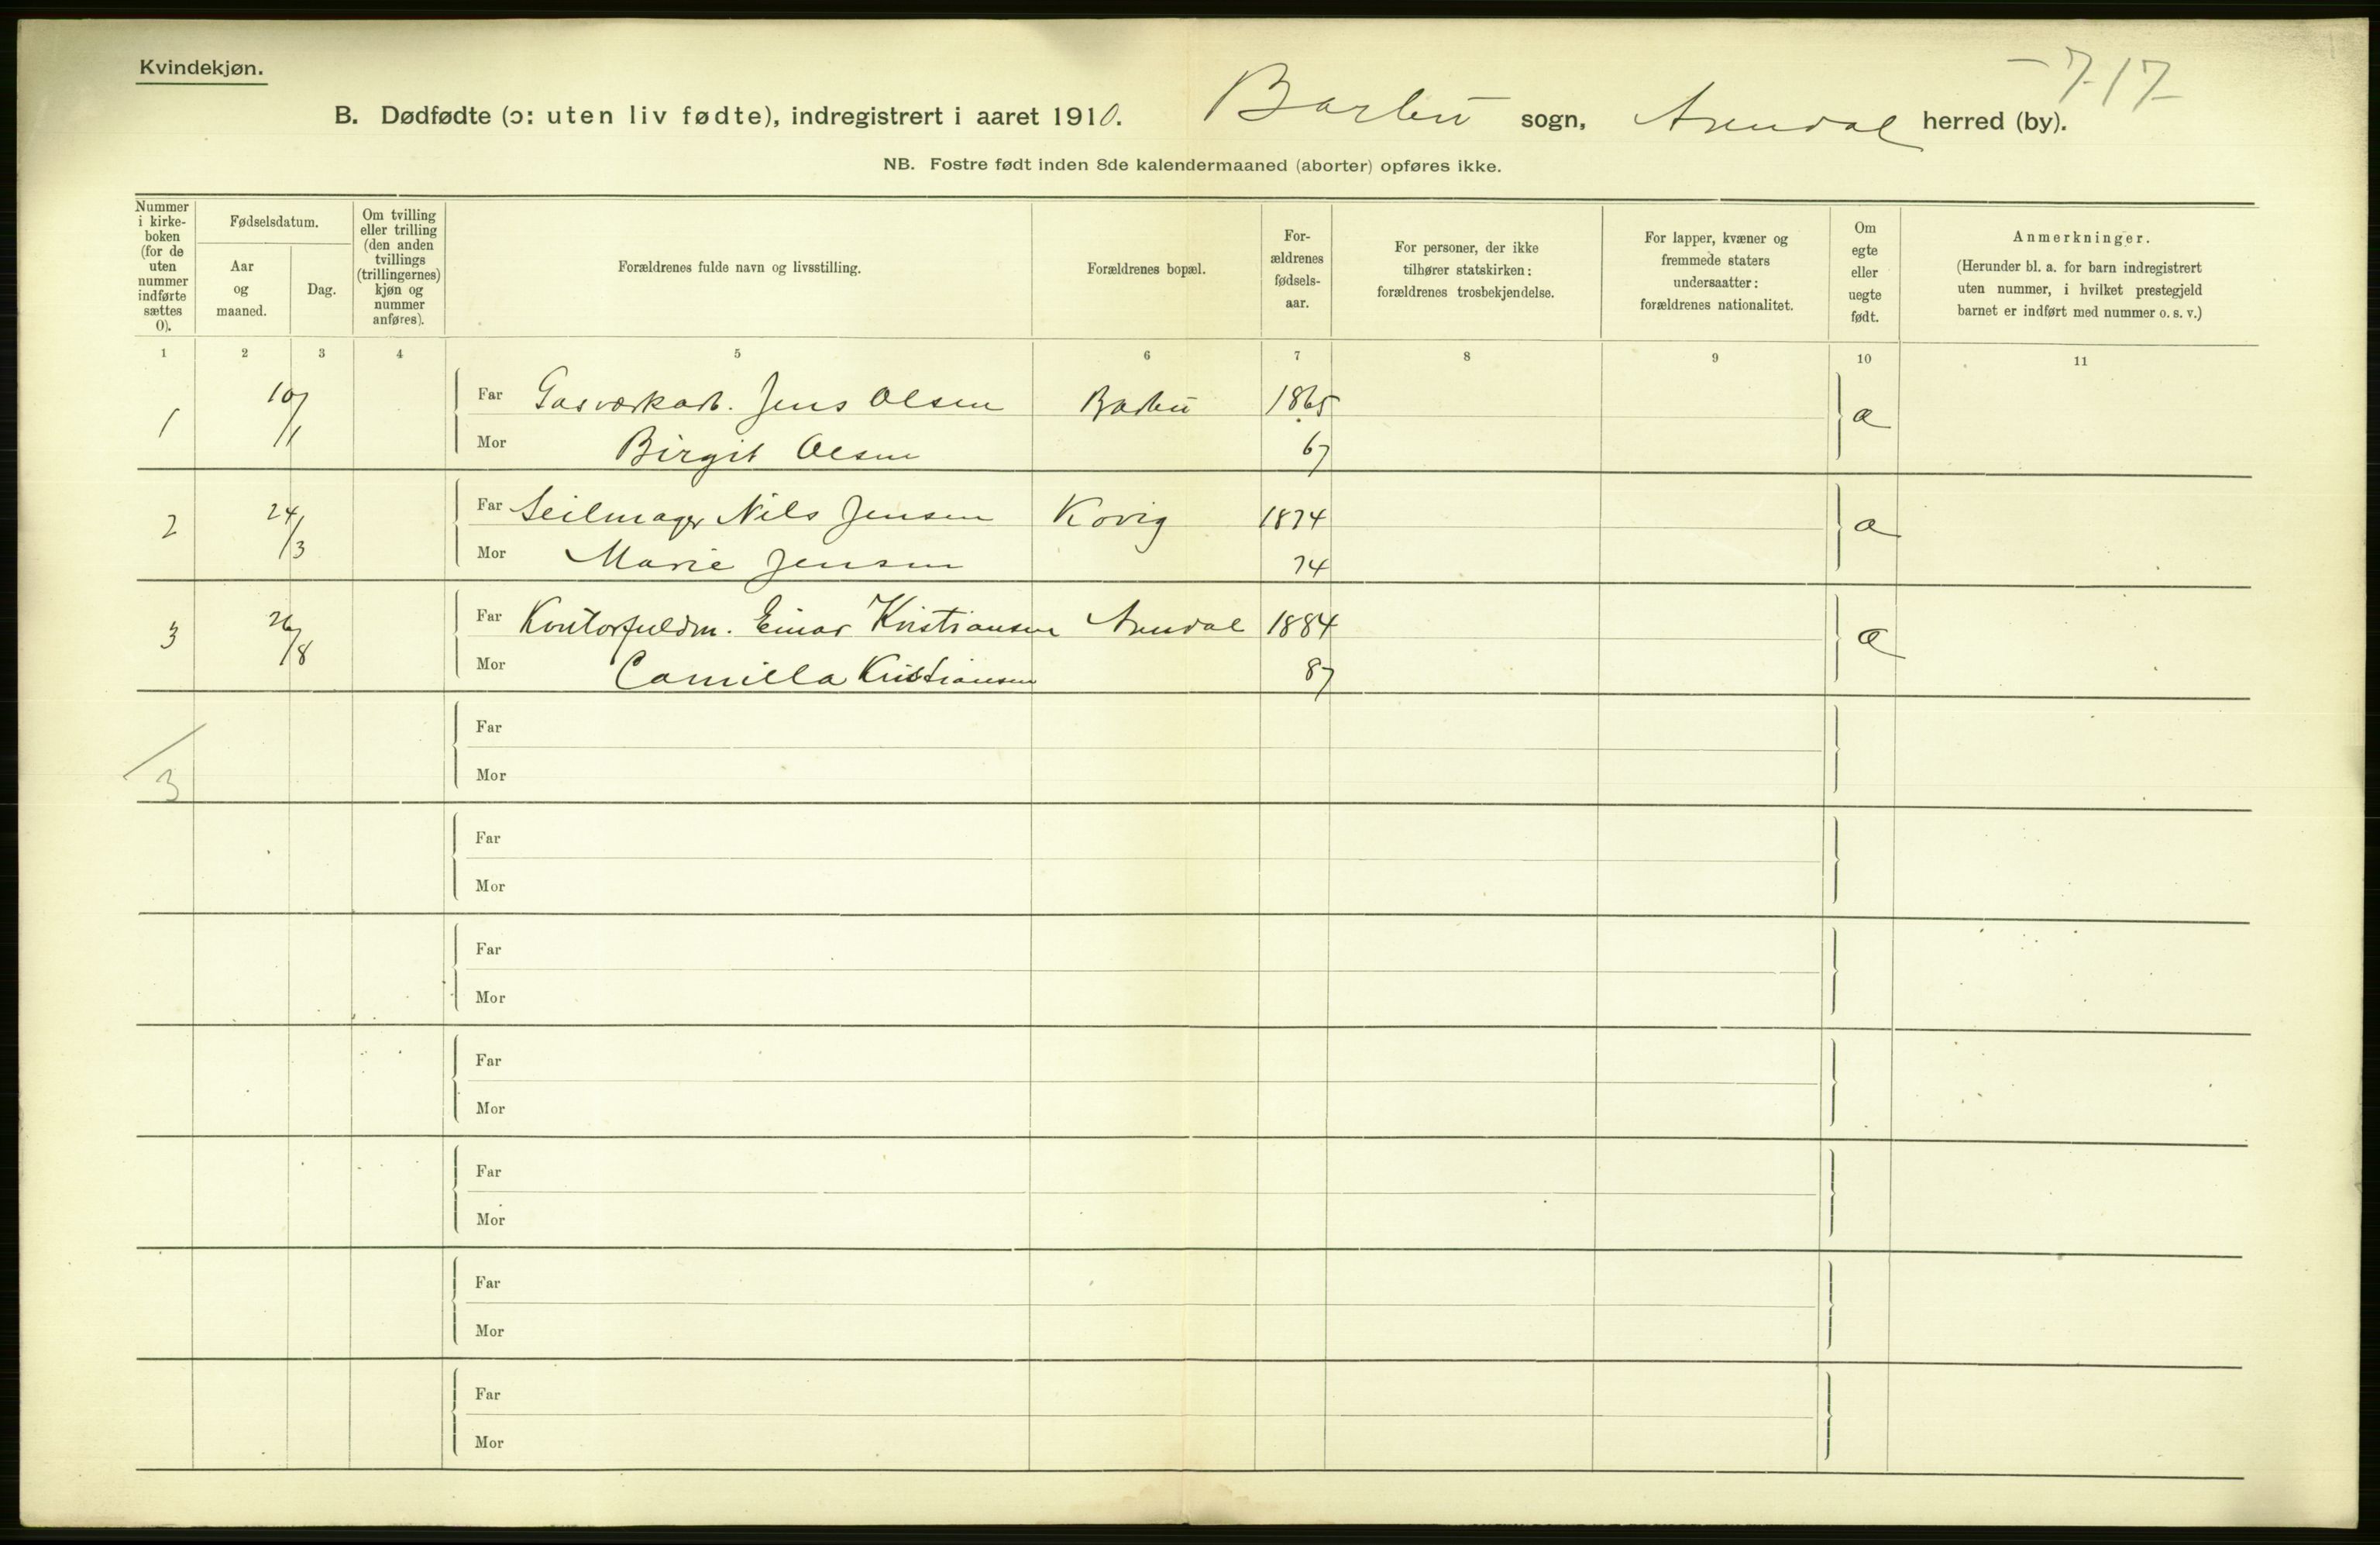 Kvindekjøn.
-717-
B. Dødfødte (ɔ: uten liv fødte), indregistrert i aaret 1910. Barbu sogn, Arendal herred (by).
NB. Fostre født inden 8de kalendermaaned (aborter) opføres ikke.
Nummer i kirke-boken (for de uten nummer indførte sættes 0).
Fødselsdatum.
Aar og maaned.
Dag.
Om tvilling eller trilling (den anden tvillings (trillingernes) kjøn og nummer anføres).
Forældrenes fulde navn og livsstilling.
Forældrenes bopæl.
For-ældrenes fødsels-aar.
For personer, der ikke tilhører statskirken: forældrenes trosbekjendelse.
For lapper, kvæner og fremmede staters undersaatter: forældrenes nationalitet.
Om egte eller uegte født.
Anmerkninger.
(Herunder bl. a. for barn indregistrert uten nummer, i hvilket prestegjeld barnet er indført med nummer o. s. v.)
1 2 3 4 5 6 7 8 9 10 11
1 10/1 Far Gasværkarb. Jens Olsen Barbu 1865 a
Mor Birgit Olsen 67
2 24/3 Far Seilmager Nils Jensen Kovig 1874 a
Mor Marie Jensen 74
3 26/8 Far Kontorfuldm. Einar Kristiansen Arendal 1884 a
Mor Camilla Kristiansen 87
Far
3 Mor
Far
Mor
Far
Mor
Far
Mor
Far
Mor
Far
Mor
Far
Mor